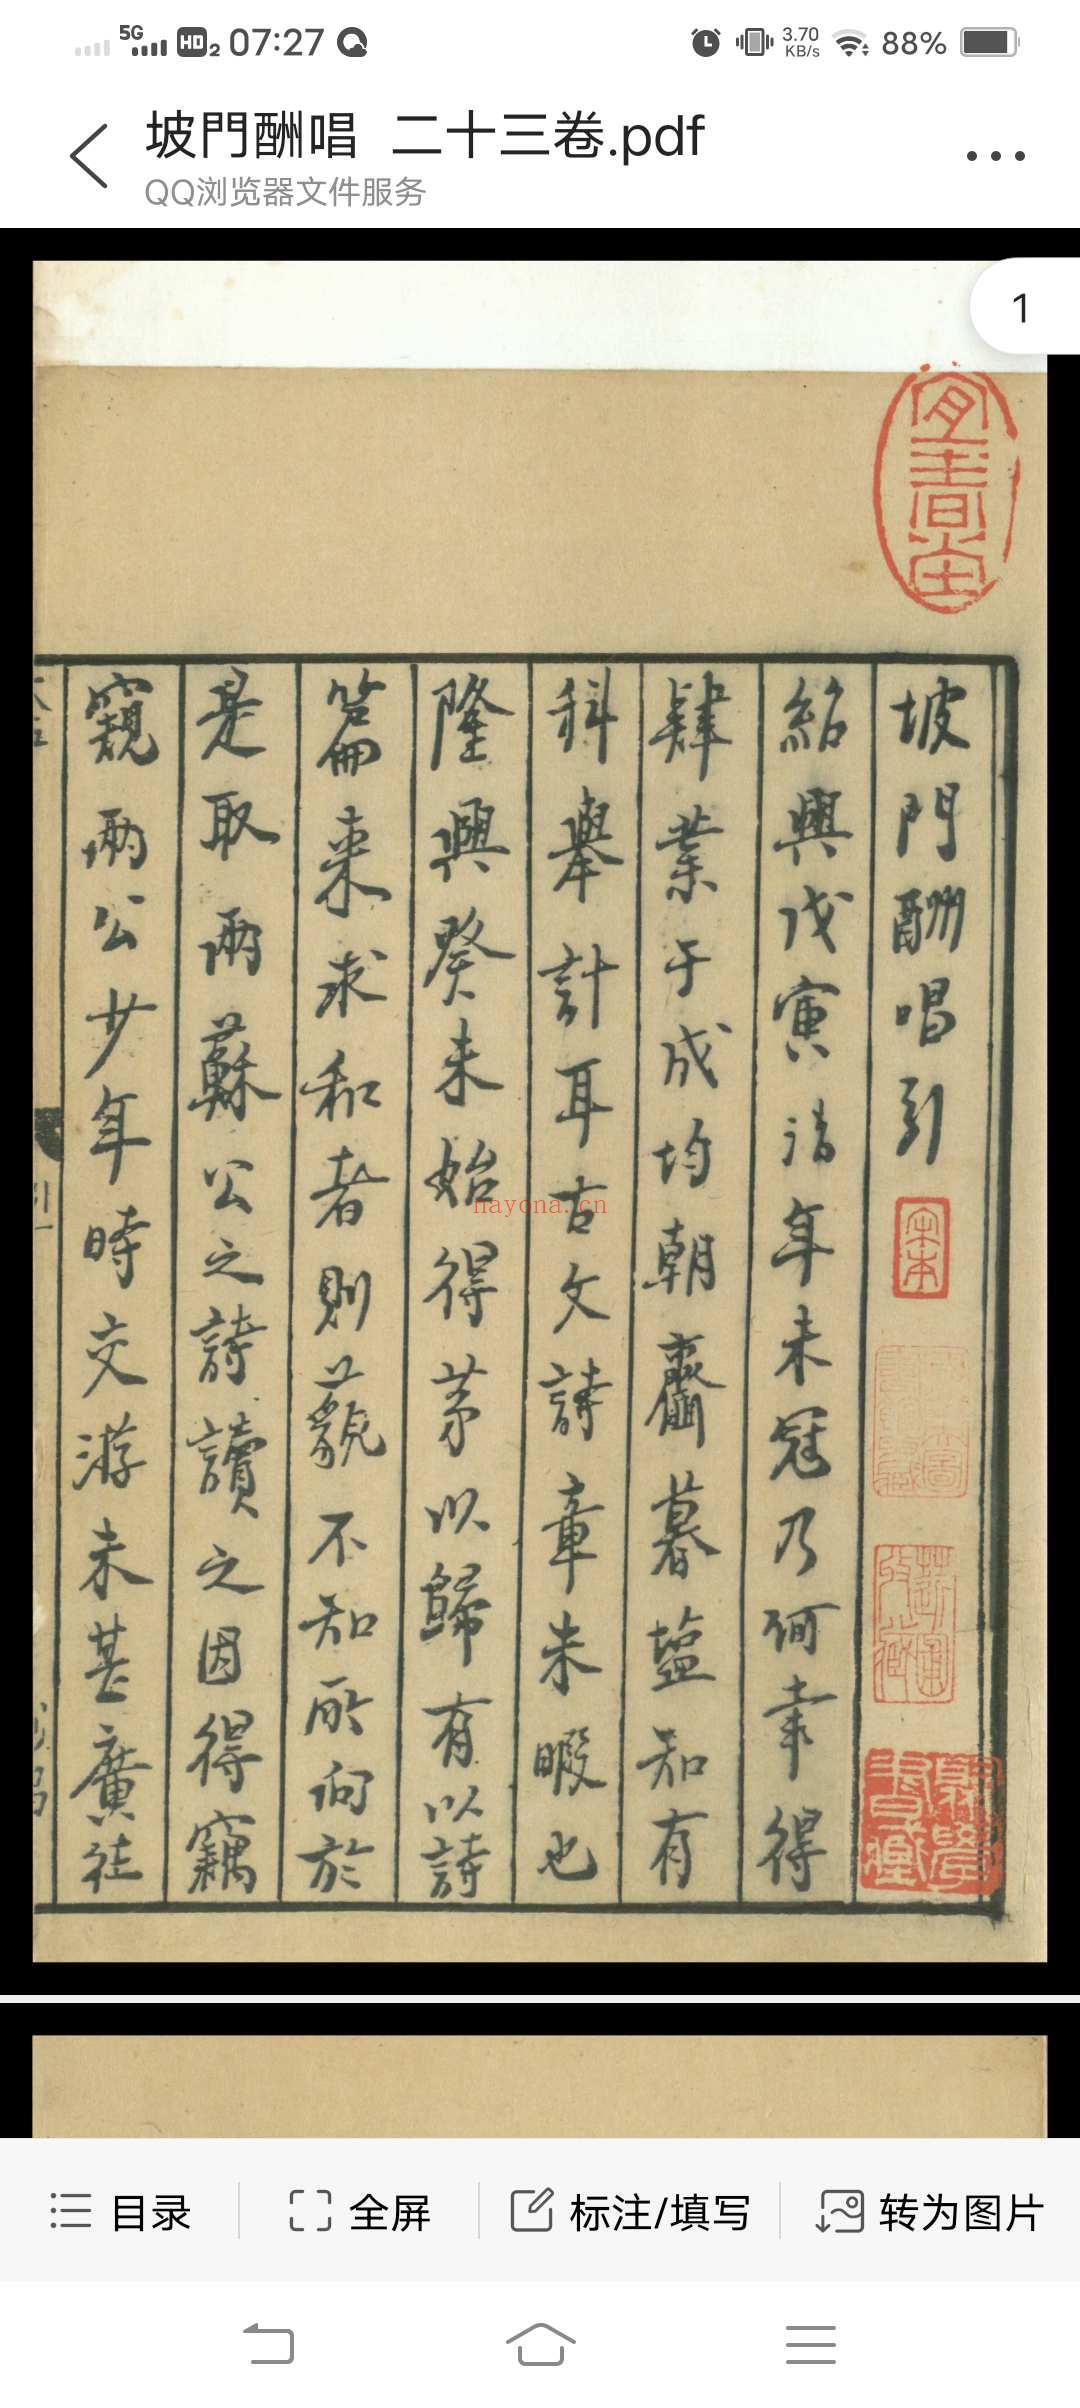 5G HD2 07:27 3.70 KB/s 88%
坡門酬唱 二十三卷.pdf
QQ浏览器文件服务
1
宜春堂
坡門酬唱引
宋本
紹興戊寅請年未冠乃何幸得
肄業于成均朝齏暮塩知有
科舉計耳古文詩章未暇也
隆興癸未始得茅以歸有以詩
篇来求和者則藐不知所向於
是取兩蘇公之詩讀之因得竊
窺兩公少年時交游未甚廣往
nayona.cn
目录
全屏
标注/填写
转为图片